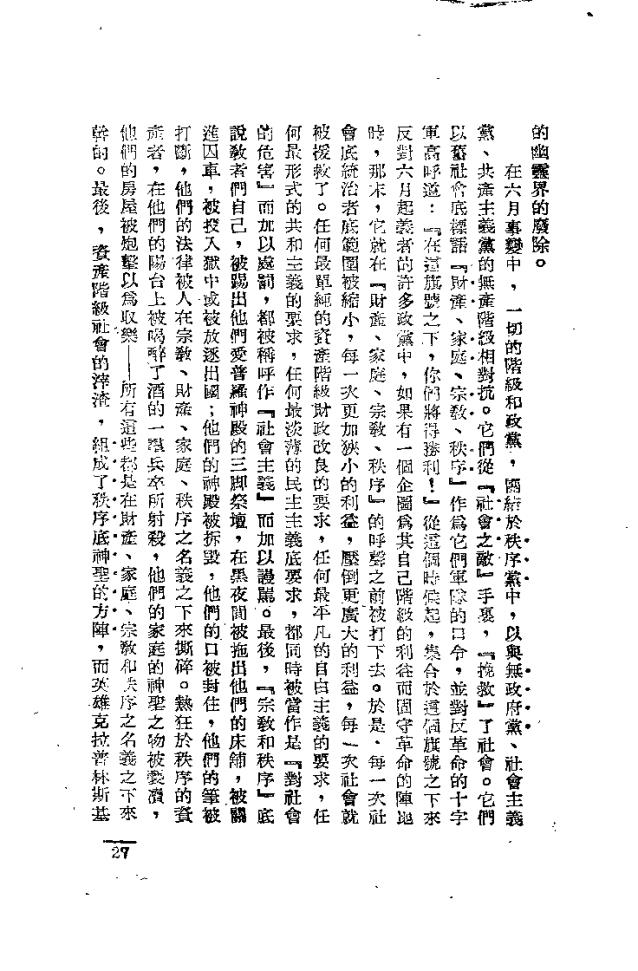 的幽靈界的廢除。
在六月事變中，一切的階級和政黨，團結於秩序黨中，以與無政府黨、社會主義
黨、共產主義黨的無產階級相對抗。它們從『社會之敵』手裏，『挽救』了社會。它們
以舊社會底標語『財產、家庭、宗敎、秩序』作爲它們軍隊的口令，並對反革命的十字
軍高呼道：『在這旗號之下，你們將得勝利！』從這個時候起，集合於這個旗號之下來
反對六月起義者的許多政黨中，如果有一個企圖爲其自己階級的利益而固守革命的陣地
時，那末，它就在『財產、家庭、宗敎、秩序』的呼聲之前被打下去。於是，每一次社
會底統治者底範圍被縮小，每一次更加狹小的利益，壓倒更廣大的利益，每一次社會就
被援救了。任何最單純的資產階級財政改良的要求，任何最平凡的自由主義的要求，任
何最形式的共和主義的要求，任何最淡薄的民主主義底要求，都同時被當作是『對社會
的危害』而加以處罰，都被稱呼作『社會主義』而加以謾駡。最後，『宗敎和秩序』底
說敎者們自己，被踢出他們愛普羅神殿的三脚祭壇，在黑夜間被拖出他們的床舖，被關
進囚車，被投入獄中或被放逐出國；他們的神殿被拆毀，他們的口被封住，他們的筆被
打斷，他們的法律被人在宗敎、財產、家庭、秩序之名義之下來撕碎。熱狂於秩序的資
產者，在他們的陽台上被喝醉了酒的一羣兵卒所射殺，他們的家庭的神聖之物被褻瀆，
他們的房屋被炮擊以爲取樂——所有這些都是在財產、家庭、宗敎和秩序之名義之下來
幹的。最後，資產階級社會的滓渣，組成了秩序底神聖的方陣，而英雄克拉普林斯基
27